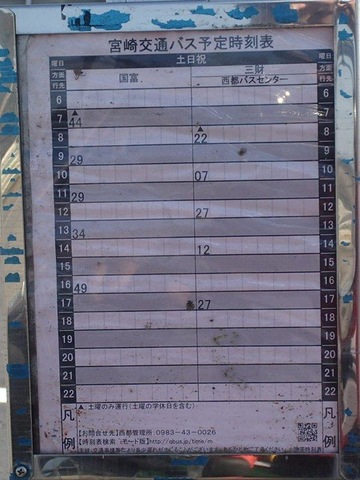 宮崎交通バス予定時刻表
曜日 土日祝 曜日
方面 国富 三財 方面
行先 西都バスセンター 行先
6 6
7 ▲44 7
8 ▲22 8
9 29 9
10 07 10
11 29 11
12 27 12
13 34 13
14 12 14
15 15
16 49 16
17 27 17
18 18
19 19
20 20
21 21
22 22
凡例
▲ 土曜のみ運行(土曜の学休日を含む)
【お問合せ先】西都営業所:0983-43-0026
【時刻表検索 (モード版)】http://qbus.jp/time/m